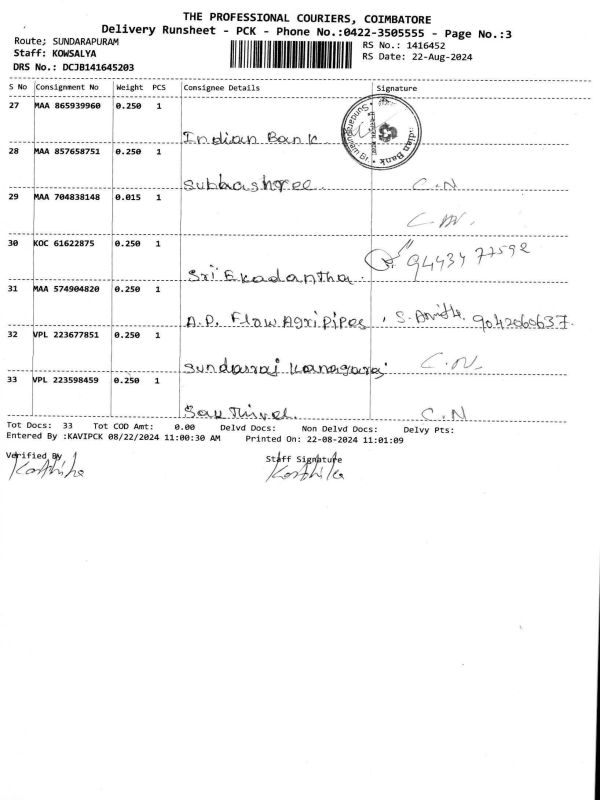 THE PROFESSIONAL COURIERS, COIMBATORE
Delivery Runsheet - PCK - Phone No.:0422-3505555 - Page No.:3
Route; SUNDARAPURAM
RS No.: 1416452
Staff: KOWSALYA
RS Date: 22-Aug-2024
DRS No.: DCJB141645203
S No Consignment No Weight PCS Consignee Details Signature
27 MAA 865939960 0.250 1
Indian Bank
Indian Bank
28 MAA 857658751 0.250 1
Subhashree C.N
29 MAA 704838148 0.015 1
30 KOC 61622875 0.250 1
94434 77592
Sri Ekadantha
31 MAA 574904820 0.250 1
A.P. Flow Agri pipes
32 VPL 223677851 0.250 1
Sundarraj Kanagaraj C.N.
33 VPL 223598459 0.250 1
C.N
Tot Docs: 33 Tot COD Amt: 0.00 Delvd Docs: Non Delvd Docs: Delvy Pts:
Entered By :KAVIPCK 08/22/2024 11:00:30 AM Printed On: 22-08-2024 11:01:09
Verified By Staff Signature